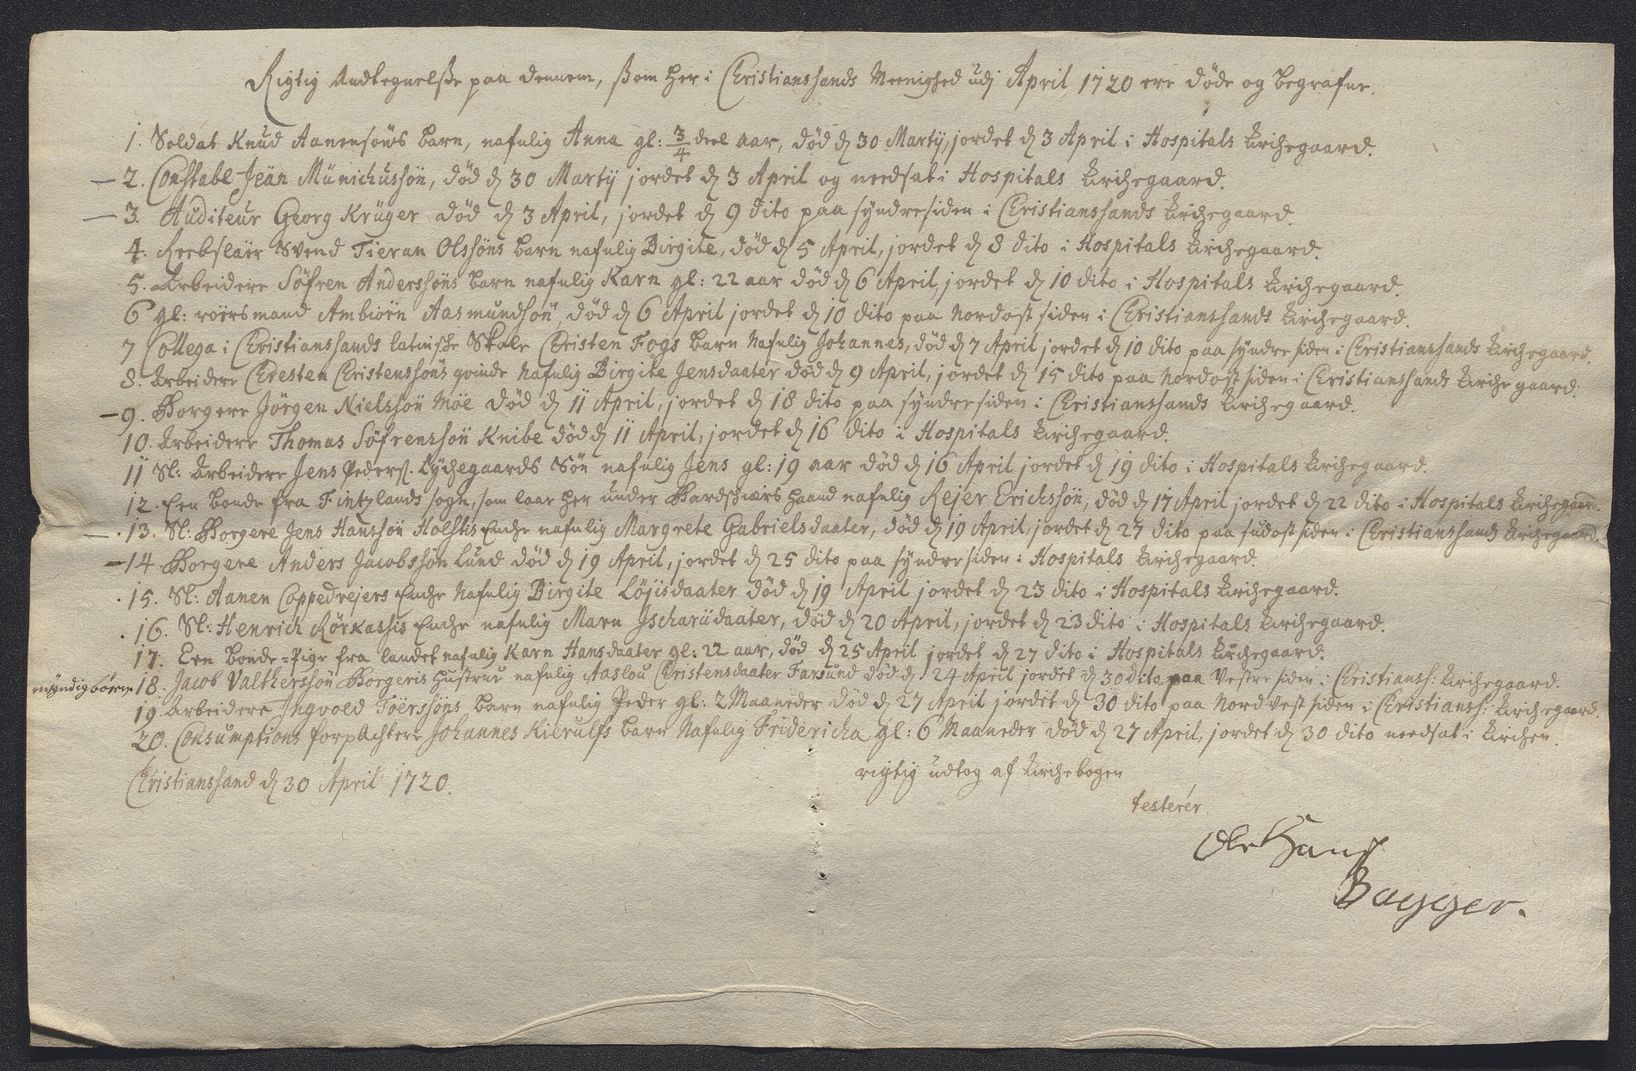 Rigtig Andtegnelsse paa dennem, ssom her i Christianssands Meenighed udj April 1720 ere døde og begrafne.
1. Soldat Knud Aanensøns barn, nafnlig Anna gl: 3/4 deel aar, død d 30 Martij, jordet d 3 April i Hospitals Kirchegaard.
2. Constabel Jeän Münichussøn, død d 30 Martij jordet d 3 April og needsat i Hospitals Kirchegaard.
3. Auditeur Georg Krüger død d 3 April, jordet d 9 dito paa syndre siden i Christianssands Kirchegaard.
4. Reebslair Svend Tieran Olssøns barn nafnlig Birgite, død d 5 April, jordet d 8 dito i Hospitals Kirchegaard.
5. Arbeidere Søfren Anderssøns barn nafnlig Karn gl: 22 aar død d 6 April, jordet d 10 dito i Hospitals Kirchegaard.
6 gl: roersmand Ambiørn Aasmundsøn, død d 6 April jordet d 10 dito paa Nordost siden i Christianssands Kirchegaard.
7 Collega i Christianssands latinsche Skole Christen Fogs barn Nafnlig Johannes, død d 7 April jordet d 10 dito paa syndre siden i Christianssands Kirchegaard.
8. Arbeidere Chresten Christenssøns qvinde Nafnlig Birgite Jensdaater død d 9 April, jordet d 15 dito paa Nordost siden i Christianssands Kirche gaard.
9. Borgere Jörgen Nielssøn Møe død d 11 April, jordet d 18 dito paa syndre siden i Christianssands Kirchegaard.
10. Arbeidere Thomas Söfrenssøn Knibe død d 11 April, jordet d 16 dito i Hospitals Kirchegaard.
11 Sl: Arbeidere Jens Peders: Lychegaards Søn nafnlig Jens gl: 19 aar død d 16 April jordet d 19 dito i Hospitals Kirchegaard.
12. Een bonde fra Fintzlands sogn, som laae her under Bardschiærs haand nafnlig Rejer Erichssøn, død d 17 April jordet d 22 dito i Hospitals Kirchegaard.
13. Sl: Borgere Jens Hanssøn Holstis Enche nafnlig Margrete Gabrielsdaater, død d 19 April jordet d 27 dito paa sudost siden i Christianssands Kirchegaard.
14 Borgere Anders Jacobssøn Lund død d 19 April, jordet d 25 dito paa syndre siden i Hospitals Kirchegaard.
15. Sl: Aanen Coppedrejers Enche Nafnlig Birgite Löjisdaater død d 19 April jordet d 23 dito i Hospitals Kirchegaard.
16. Sl: Henrich Rörkassis Enche nafnlig Marn Jscharüdaater, død d 20 April, jordet d 23 dito i Hospitals Kirchegaard.
17. Een bonde-Pige fra landet nafnlig Karn Hansdaater gl: 22 aar, død d 25 April jordet d 27 dito i Hospitals Kirchegaard.
myndig børn 18. Jacob Valtherssøn Borgeris hustrue nafnlig Aaslou Christensdaater Farsund død d 24 April jordet d 30 dito paa Vestre siden i Christianss: Kirchegaard.
19. Arbeidere Ingvold Töerssøns barn nafnlig Peder gl: 2 Maaneder død d 27 April jordet d 30 dito paa Nordvest siden i Christianss: Kirchegaard.
20. Consumptions forpachter Johannes Kierulfs barn Nafnlig Fridericha gl: 6 Maaneder død d 27 April, jordet d 30 dito needsat i Kirchen.
Christianssand d 30 April 1720.
rigtig udtog af Kirchebogen
testerer
Ole Hans
Bagger.